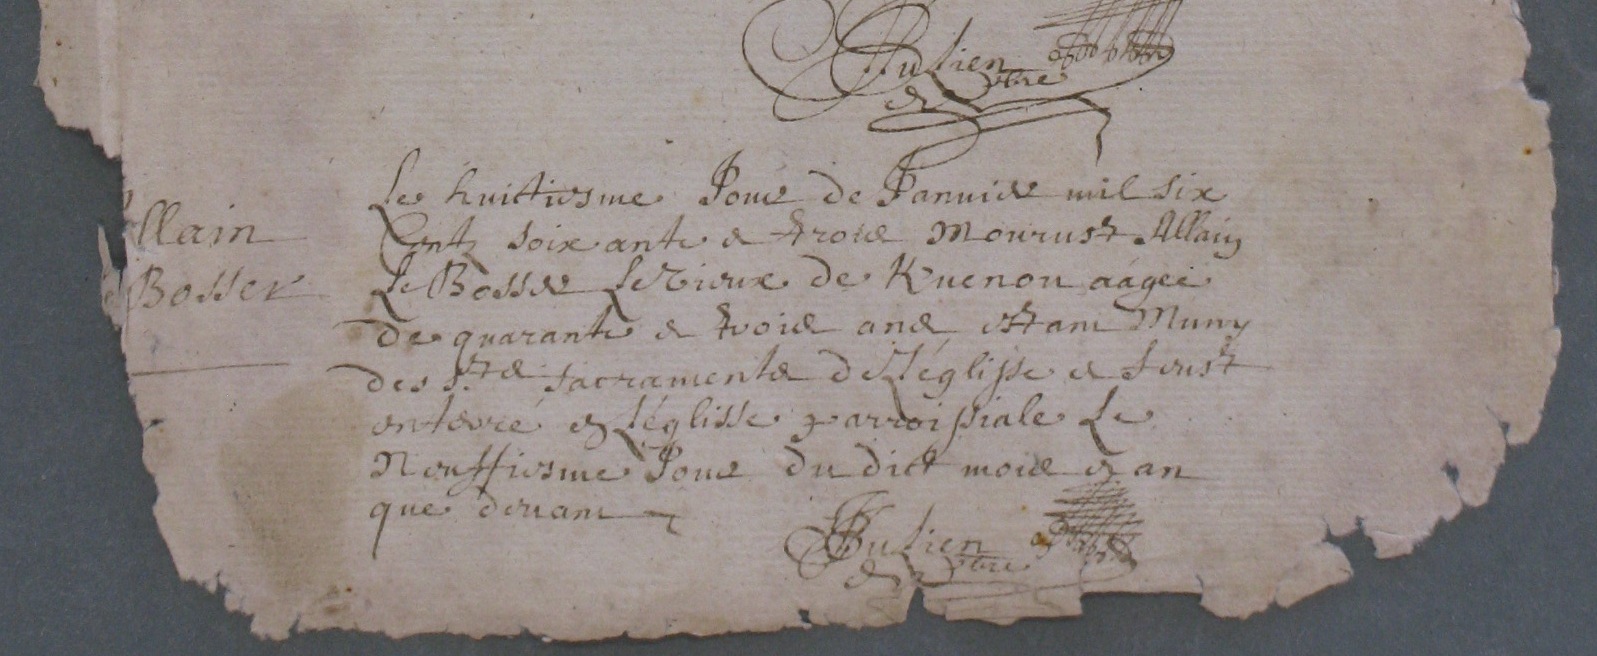 Julien
ptre
Allain
Bosser
Le huictiesme Jour de Janvier mil six
Centz soixante & trois Mourust Allain
Le Bosser Le Vieux de Kvenou aâgee
de quarante & trois ans estant Muny
des Sts sacraments de L'églisse & fust
enterré en L'églisse parroissiale Le
Neuffiesme Jour du dict mois & an
que devant
Julien
ptre